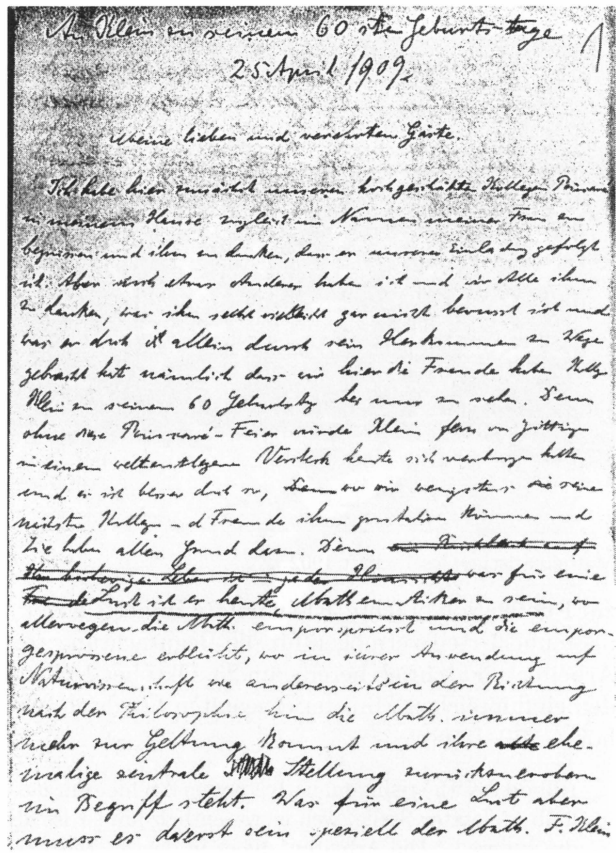 An Klein zu seinem 60sten Geburtstage
25 April 1909.
1
Meine lieben und verehrten Gäste.
Ich habe hier zunächst unseren hochgeschätzten Kollegen Poincaré
in meinem Hause zugleich im Namen meiner Frau zu
begrüssen und ihm zu danken, dass er unserer Einladung gefolgt
ist. Aber noch etwas Anderes haben ich und wir Alle ihm
zu danken, was ihm selbst vielleicht gar nicht bewusst ist und
was er doch allein durch sein Herkommen zu Wege
gebracht hat nämlich dass wir hier die Freude haben Kollege
Klein zu seinem 60 Geburtstag bei uns zu sehen. Denn
ohne diese Poincaré-Feier würde Klein fern von Göttingen
in einem weltentlegenen Versteck heute sich verborgen halten
und es ist besser doch so, wo wir wenigstens seine
nächsten Kollegen und Freunde ihm gratulieren können und
Sie haben allen Grund dazu. Denn ein Rückblick auf
Ihr bisheriges Leben ist in jeder Hinsicht was für eine
Lust ist er heute, Mathematiker zu sein, wo
allerwegen die Math. emporspriesst und die empor-
gesprossene erblüht, wo in ihrer Anwendung auf
Naturwissenschaft wie andererseits in der Richtung
nach der Philosophie hin die Math. immer
mehr zur Geltung kommt und ihre alte ehe-
malige zentrale Stellung zurückzuerobern
im Begriff steht. Was für eine Lust aber
muss es da erst sein speziell der Math. F. Klein